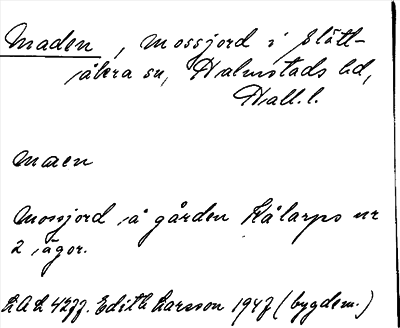 Maden, Mossjord i Slätt-
åkra sn, Halmstads hd,
Hall. l.
maen
Mossjord å gården Kålarps nr
2 ägor.
LAL 4277. Edith Larsson 1947 (bygdem.)